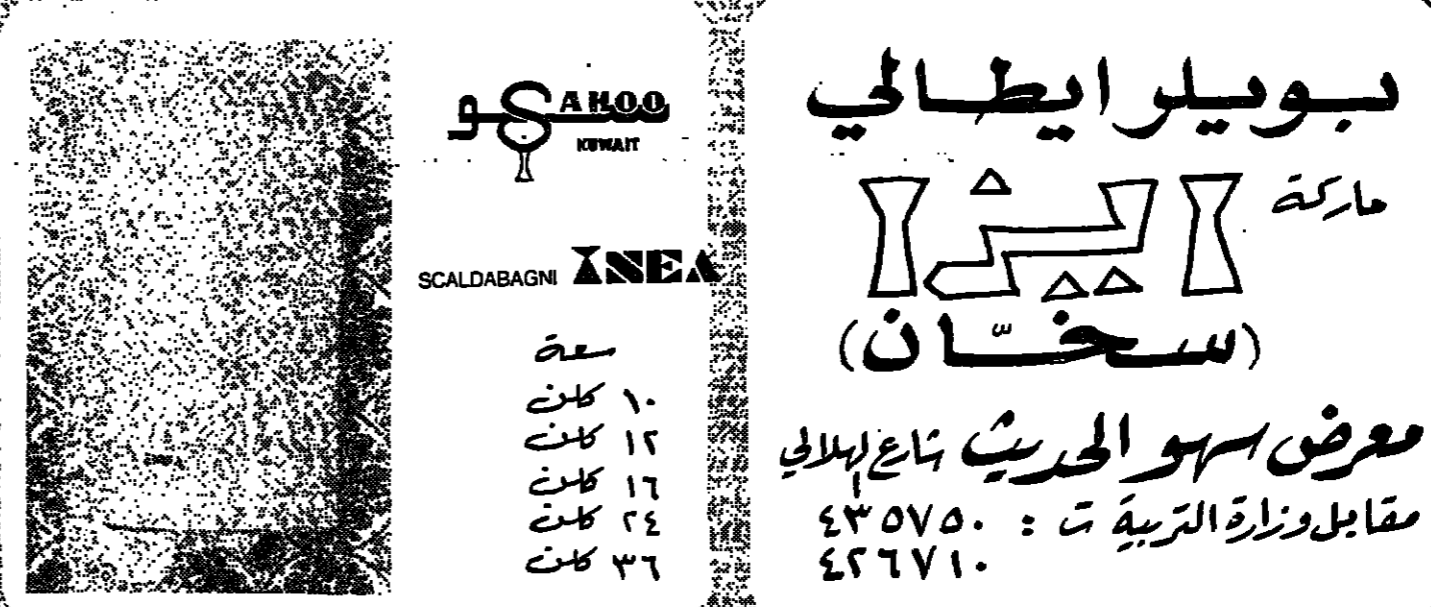 بويلر ايطالي
ماركة
اينيا
(سخّان)
معرض سهو الحديث شارع الهلالي
مقابل وزارة التربية ت : ٤٣٥٧٥٠
٤٢٦٧١٠
SAHOO
سهو
KUWAIT
SCALDABAGNI INEA
سعة
١٠ كلن
١٢ كلن
١٦ كلن
٢٤ كلن
٣٦ كلن